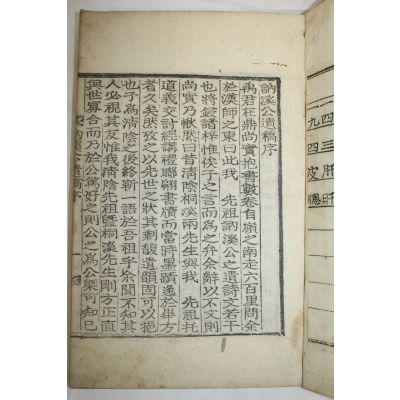 訥溪公遺稿序
禹君柱鼎尚實抱書數卷自嶺之南走六百里問余
於漢師之東曰此我　先祖訥溪公之遺詩文若干
也將鋟諸梓惟俟子之言而爲之弁余辭以不文則
尚實乃愀然曰昔淸陰桐溪兩先生與我　先祖托
道義交討經講禮聯翩書牘而當時墨蹟逸於畢方
者久矣然攷之以先世之狀其剩馥遺韻固可以挹
也子爲淸陰之後終靳一語於吾祖乎余聞不知其
人必視其友惟我淸陰先祖曁桐溪先生剛方正直
與世寡合而乃於公篤好之則公之爲公槩可知已
訥溪公遺稿序
一 四 肝 肝
九 四 皮 聰